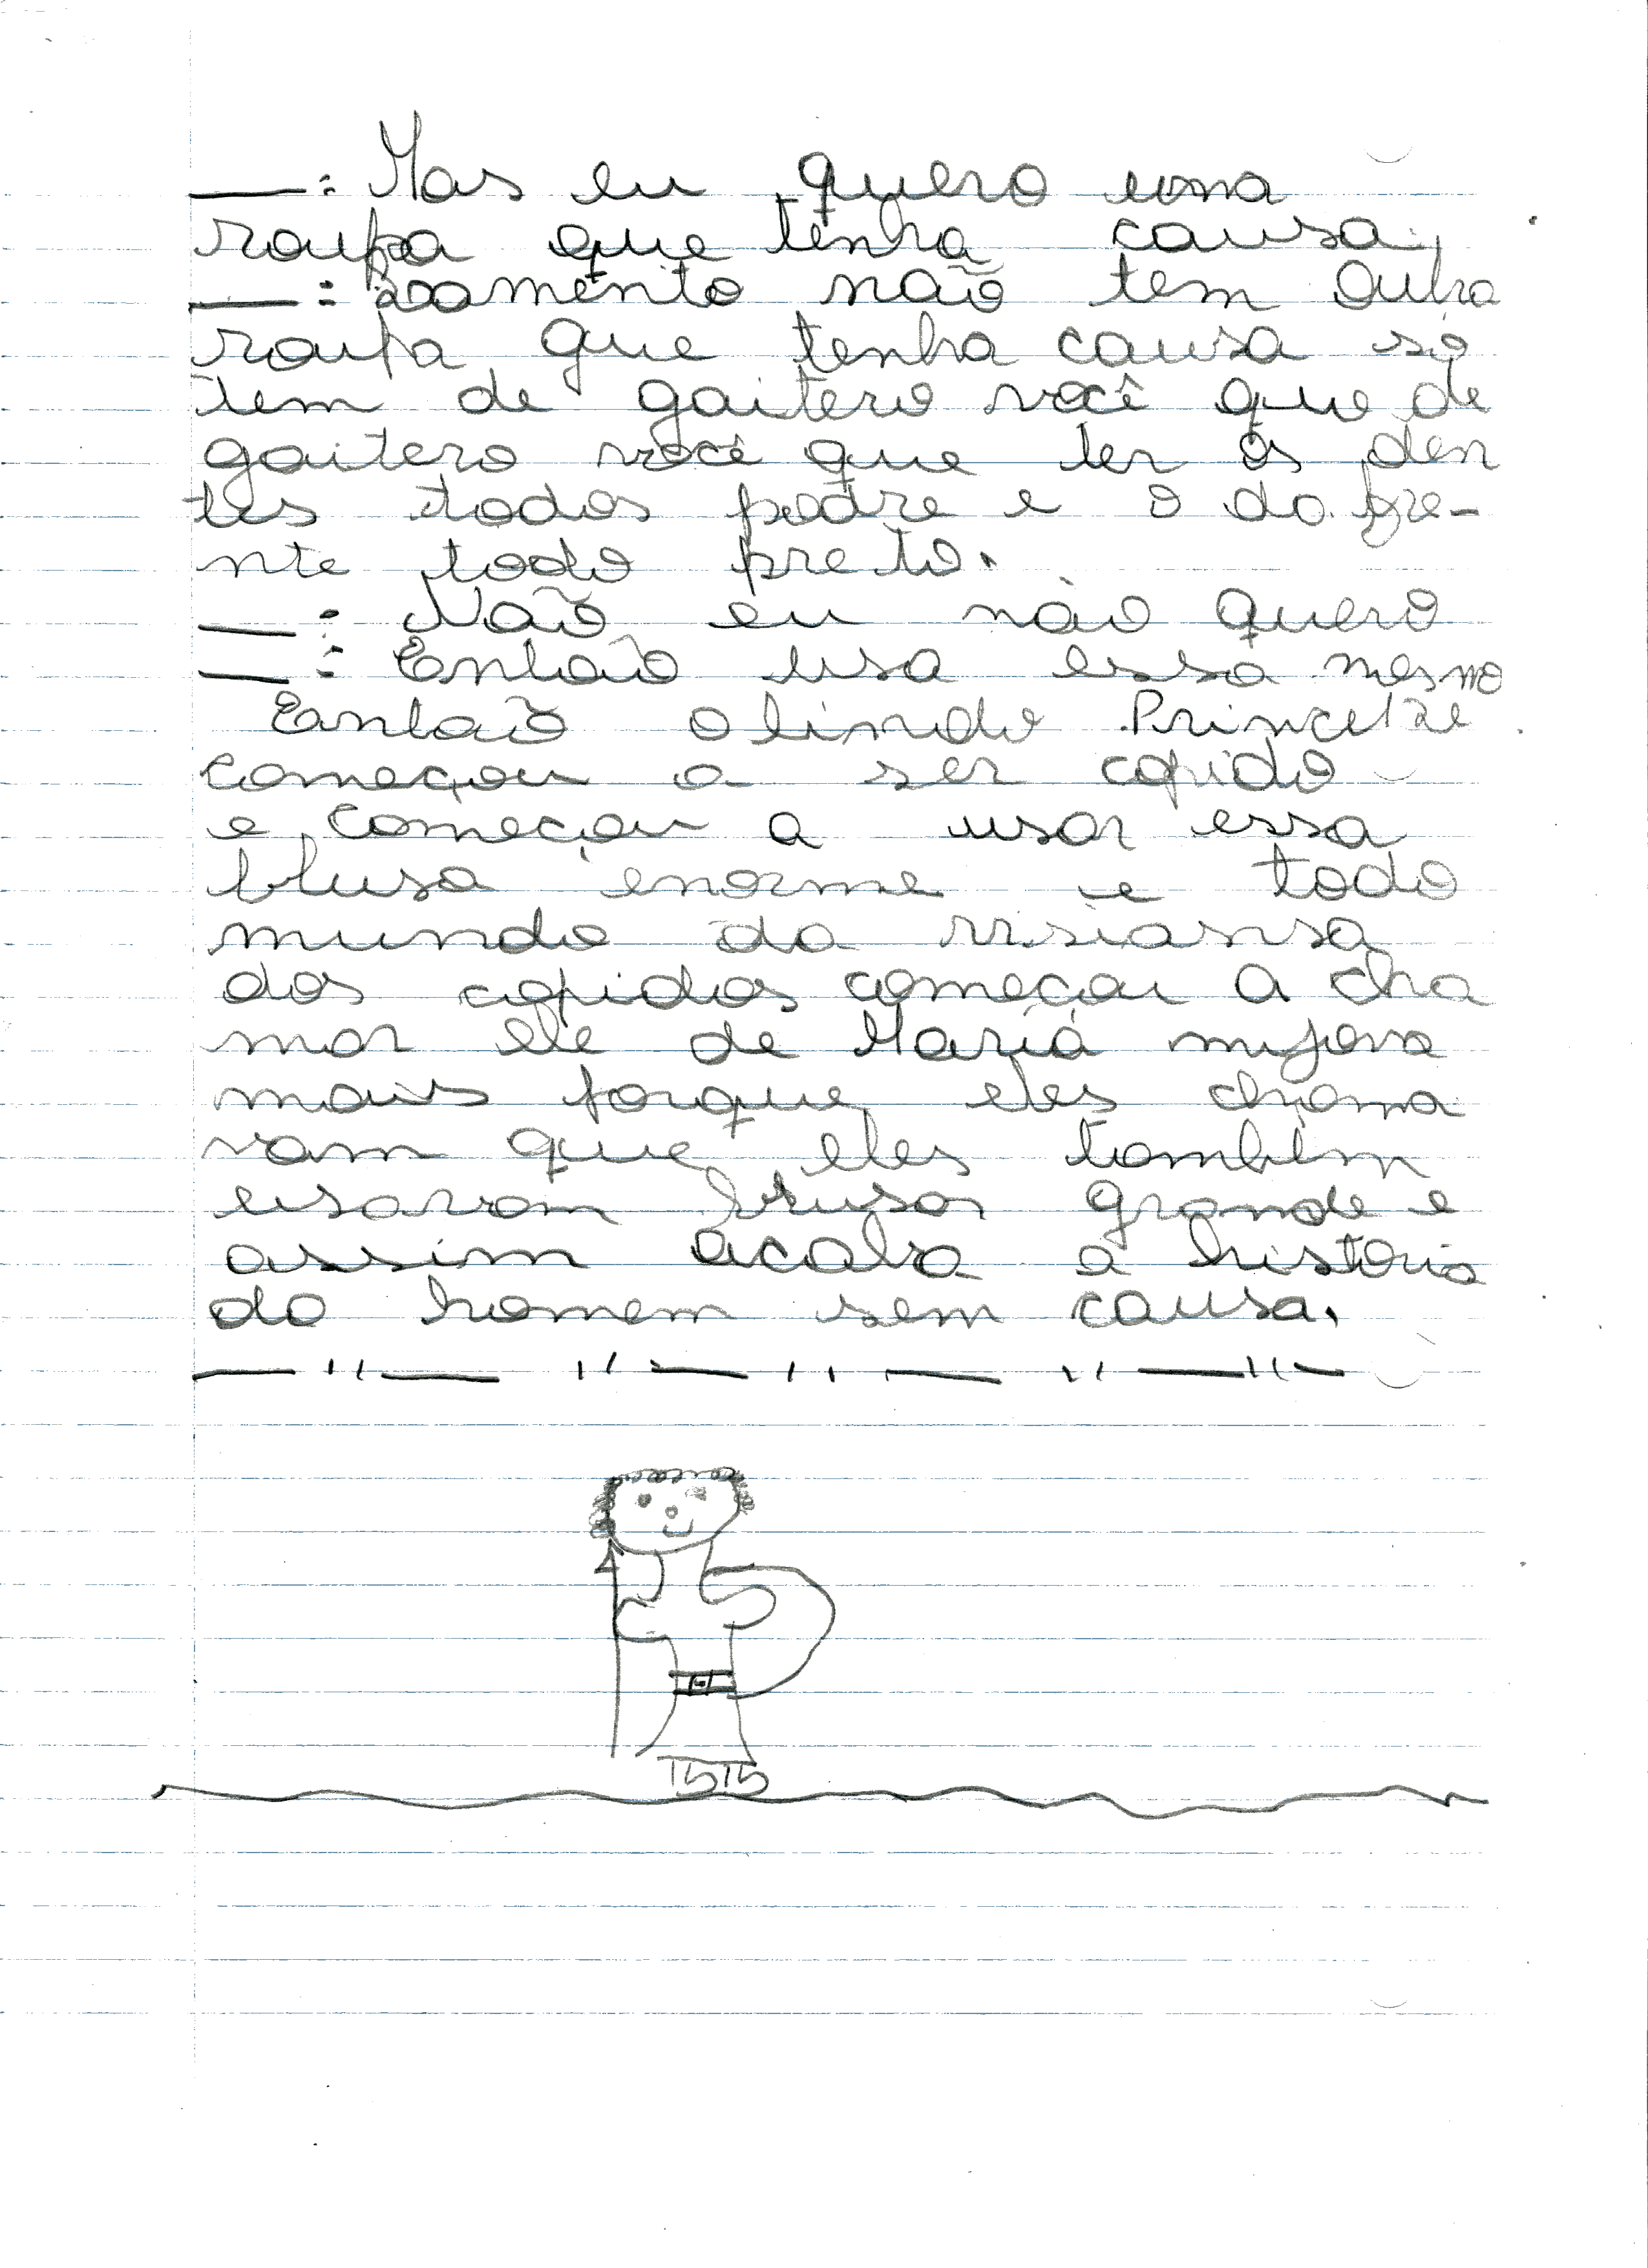 —: Mas eu quero uma
roupa que tenha causa.
—: Lamento não tem outra
roupa que tenha causa só
tem de gaitero você que de
gaitero você que ter os den
tes todos podre e o da fre-
nte todo preto.
—: Não eu não quero
—: Então usa essa mesmo
Então o lindo Princepe
começou a ser copido
e começou a usar essa
blusa enorme e todo
mundo da
dos copidos começou a cha
mar ele de Maria mijona
mais porque eles chama
vam que eles tambem
usavam blusas grande e
assim acaba a historia
do homem sem causa.